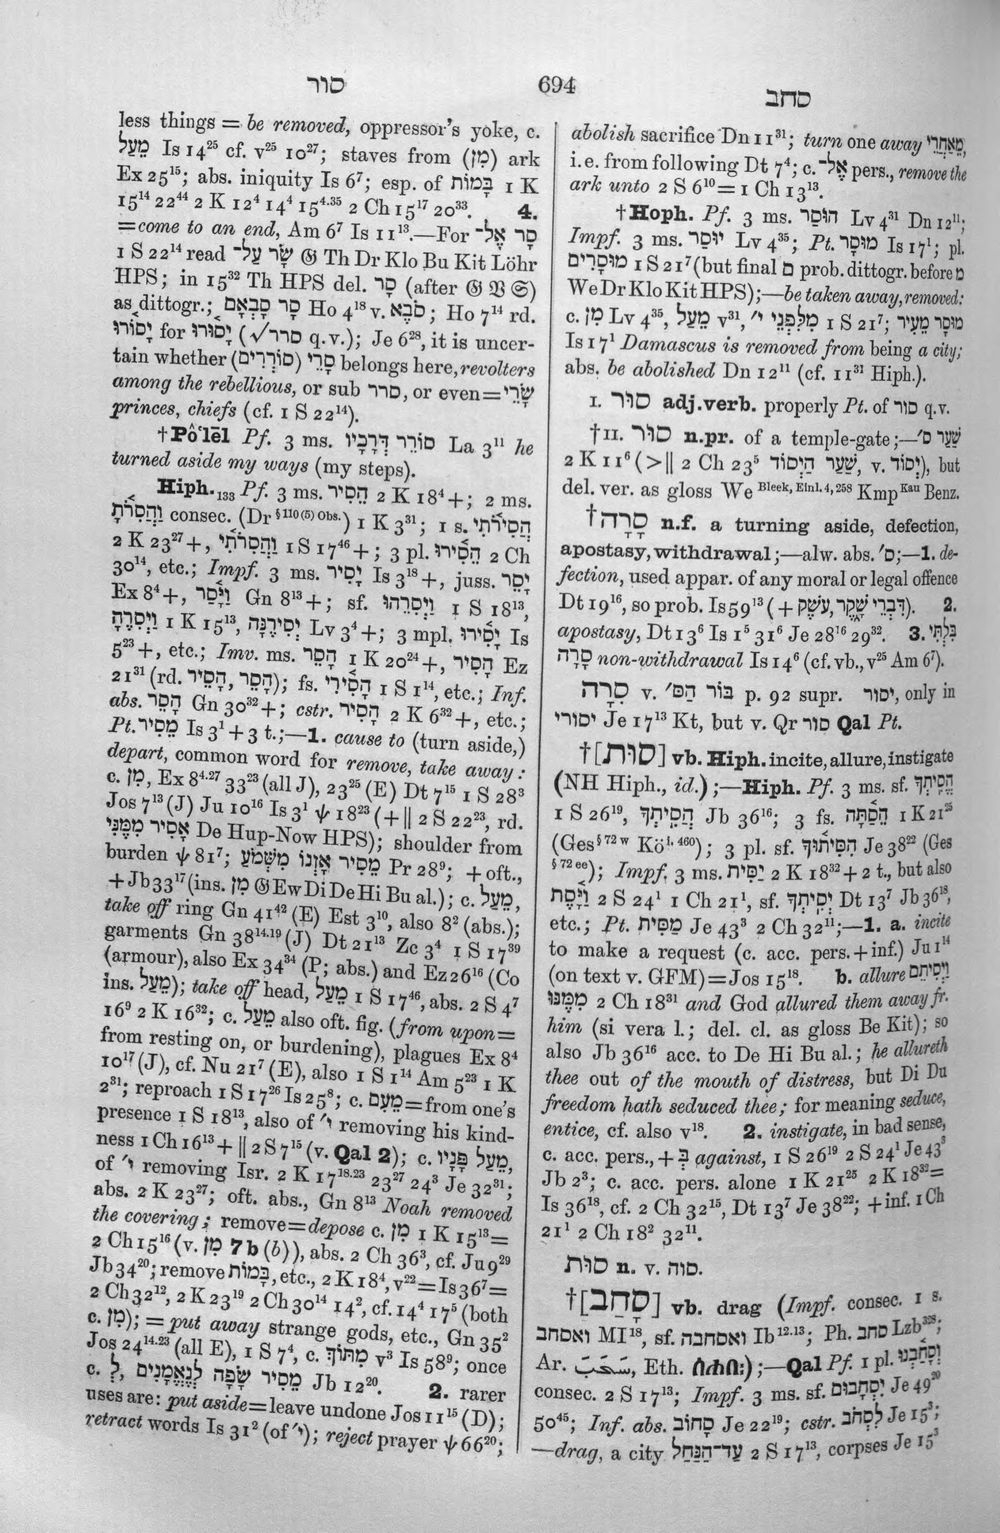 סור
694
סחב
less things = be removed, oppressor's yoke, c.
מֵעַל Is 14²⁵ cf. v²⁵ 10²⁷; staves from (מִן) ark
Ex 25¹⁵; abs. iniquity Is 6⁷; esp. of בָּמוֹת 1 K
15¹⁴ 22⁴⁴ 2 K 12⁴ 14⁴ 15⁴·³⁵ 2 Ch 15¹⁷ 20³³. 4.
= come to an end, Am 6⁷ Is 11¹³.—For סָר אֶל־
1 S 22¹⁴ read שַׂר עַל־ 𝔊 Th Dr Klo Bu Kit Löhr
HPS; in 15³² Th HPS del. סָר (after 𝔊 𝔙 𝔖)
as dittogr.; סָר סָבְאָם Ho 4¹⁸ v. סֹבֶא; Ho 7¹⁴ rd.
יָסֹורוּ for יָסוּרוּ (√סרר q.v.); Je 6²⁸, it is uncer-
tain whether סָרֵי (סוֹרְרִים) belongs here, revolters
among the rebellious, or sub סרר, or even=שָׂרֵי
princes, chiefs (cf. 1 S 22¹⁴).
†Pô‛lēl Pf. 3 ms. סוֹרֵר דְּרָכָיו La 3¹¹ he
turned aside my ways (my steps).
Hiph.₁₃₃ Pf. 3 ms. הֵסִיר 2 K 18⁴+; 2 ms.
וַהֲסֵרֹתָ consec. (Dr §110(5) Obs.) 1 K 3³¹; 1 s. הֲסִירֹתִי
2 K 23²⁷+, וַהֲסִרֹתִי 1 S 17⁴⁶+; 3 pl. הֵסִירוּ 2 Ch
30¹⁴, etc.; Impf. 3 ms. יָסִיר Is 3¹⁸+, juss. יָסֵר
Ex 8⁴+, וַיָּסַר Gn 8¹³+; sf. וַיְסִרֵהוּ 1 S 18¹³,
וַיְסִרֶהָ 1 K 15¹³, יְסִירֶנָּה Lv 3⁴+; 3 mpl. יָסִירוּ Is
5²³+, etc.; Imv. ms. הָסֵר 1 K 20²⁴+, הָסִיר Ez
21³¹ (rd. הָסֵר, הָסֵיר); fs. הָסִירִי 1 S 1¹⁴, etc.; Inf.
abs. הָסֵר Gn 30³²+; cstr. הָסִיר 2 K 6³²+, etc.;
Pt. מֵסִיר Is 3¹ + 3 t.;—1. cause to (turn aside,)
depart, common word for remove, take away:
c. מִן, Ex 8⁴·²⁷ 33²³ (all J), 23²⁵ (E) Dt 7¹⁵ 1 S 28³
Jos 7¹³ (J) Ju 10¹⁶ Is 3¹ ψ 18²³ (+ ‖ 2 S 22²³, rd.
אָסִיר מִמֶּנִּי De Hup-Now HPS); shoulder from
burden ψ 81⁷; מֵסִיר אָזְנוֹ מִשְּׁמֹעַ Pr 28⁹; + oft.,
+Jb 33¹⁷ (ins. מִן 𝔊 Ew Di De Hi Bu al.); c. מֵעַל,
take off ring Gn 41⁴² (E) Est 3¹⁰, also 8² (abs.);
garments Gn 38¹⁴·¹⁹ (J) Dt 21¹³ Zc 3⁴ 1 S 17³⁹
(armour), also Ex 34³⁴ (P; abs.) and Ez 26¹⁶ (Co
ins. מֵעַל); take off head, מֵעַל 1 S 17⁴⁶, abs. 2 S 4⁷
16⁹ 2 K 16³²; c. מֵעַל also oft. fig. (from upon=
from resting on, or burdening), plagues Ex 8⁴
10¹⁷ (J), cf. Nu 21⁷ (E), also 1 S 1¹⁴ Am 5²³ 1 K
2³¹; reproach 1 S 17²⁶ Is 25⁸; c. מֵעִם=from one's
presence 1 S 18¹³, also of י׳ removing his kind-
ness 1 Ch 16¹³ + ‖ 2 S 7¹⁵ (v. Qal 2); c. מֵעַל פָּנָיו,
of י׳ removing Isr. 2 K 17¹⁸·²³ 23²⁷ 24³ Je 32³¹;
abs. 2 K 23²⁷; oft. abs., Gn 8¹³ Noah removed
the covering; remove=depose c. מִן 1 K 15¹³=
2 Ch 15¹⁶ (v. מִן 7 b (b)), abs. 2 Ch 36³, cf. Ju 9²⁹
Jb 34²⁰; remove בָּמוֹת, etc., 2 K 18⁴, v²²=Is 36⁷=
2 Ch 32¹², 2 K 23¹⁹ 2 Ch 30¹⁴ 14², cf. 14⁴ 17⁵ (both
c. מִן); = put away strange gods, etc., Gn 35²
Jos 24¹⁴·²³ (all E), 1 S 7⁴, c. מִתּוֹךְ v³ Is 58⁹; once
c. לְ, מֵסִיר שָׂפָה לְנֶאֱמָנִים Jb 12²⁰. 2. rarer
uses are: put aside=leave undone Jos 11¹⁵ (D);
retract words Is 31² (of י׳); reject prayer ψ 66²⁰;
abolish sacrifice Dn 11³¹; turn one away מֵאַחֲרֵי,
i.e. from following Dt 7⁴; c. אֶל־ pers., remove the
ark unto 2 S 6¹⁰ = 1 Ch 13¹³.
†Hoph. Pf. 3 ms. הוּסַר Lv 4³¹ Dn 12¹¹;
Impf. 3 ms. יוּסַר Lv 4³⁵; Pt. מוּסָר Is 17¹; pl.
מוּסָרִים 1 S 21⁷ (but final ם prob. dittogr. before מ
We Dr Klo Kit HPS);—be taken away, removed:
c. מִן Lv 4³⁵, מֵעַל v³¹, מִלִּפְנֵי י׳ 1 S 21⁷; מוּסָר מֵעִיר
Is 17¹ Damascus is removed from being a city;
abs. be abolished Dn 12¹¹ (cf. 11³¹ Hiph.).
I. סוּר adj.verb. properly Pt. of סור q.v.
†II. סוּר n.pr. of a temple-gate;—שַׁעַר ס׳
2 K 11⁶ (> ‖ 2 Ch 23⁵ שַׁעַר הַיְסוֹד, v. יְסוֹד), but
del. ver. as gloss We Bleek, Einl. 4, 258 Kmp Kau Benz.
†סָרָה n.f. a turning aside, defection,
apostasy, withdrawal;—alw. abs. ס׳;—1. de-
fection, used appar. of any moral or legal offence
Dt 19¹⁶, so prob. Is 59¹³ (+ דִּבְרֵי שֶׁקֶר, עֹשֶׁק). 2.
apostasy, Dt 13⁶ Is 1⁵ 31⁶ Je 28¹⁶ 29³². 3. בִּלְתִּי
סָרָה non-withdrawal Is 14⁶ (cf. vb., v²⁵ Am 6⁷).
סִרָה v. בּוֹר הַסּ׳ p. 92 supr. יסור, only in
יסורי Je 17¹³ Kt, but v. Qr סור Qal Pt.
†[סוּת] vb. Hiph. incite, allure, instigate
(NH Hiph., id.);—Hiph. Pf. 3 ms. sf. הֱסִיתְךָ
1 S 26¹⁹, הֲסִיתְךָ Jb 36¹⁶; 3 fs. הֵסַתָּה 1 K 21²⁵
(Ges § 72 w Kö I. 460); 3 pl. sf. הִסִּיתוּךָ Je 38²² (Ges
§ 72 ee); Impf. 3 ms. יַסִּית 2 K 18³² + 2 t., but also
וַיָּסֶת 2 S 24¹ 1 Ch 21¹, sf. יְסִיתְךָ Dt 13⁷ Jb 36¹⁸,
etc.; Pt. מַסִּית Je 43³ 2 Ch 32¹¹;—1. a. incite
to make a request (c. acc. pers. + inf.) Ju 1¹⁴
(on text v. GFM)=Jos 15¹⁸. b. allure וַיְסִיתֵם
מִמֶּנּוּ 2 Ch 18³¹ and God allured them away fr.
him (si vera l.; del. cl. as gloss Be Kit); so
also Jb 36¹⁶ acc. to De Hi Bu al.; he allureth
thee out of the mouth of distress, but Di Du
freedom hath seduced thee; for meaning seduce,
entice, cf. also v¹⁸. 2. instigate, in bad sense,
c. acc. pers., + בְּ against, 1 S 26¹⁹ 2 S 24¹ Je 43³
Jb 2³; c. acc. pers. alone 1 K 21²⁵ 2 K 18³²=
Is 36¹⁸, cf. 2 Ch 32¹⁵, Dt 13⁷ Je 38²²; + inf. 1 Ch
21¹ 2 Ch 18² 32¹¹.
סוּת n. v. סוה.
†[סָחַב] vb. drag (Impf. consec. 1 s.
ואסחב MI¹⁸, sf. ואסחבה Ib¹²·¹³; Ph. סחב Lzb³²⁸;
Ar. سَحَبَ, Eth. ሰሐበ:);—Qal Pf. 1 pl. וְסָחַבְנוּ
consec. 2 S 17¹³; Impf. 3 ms. sf. יִסְחָבוּם Je 49²⁰
50⁴⁵; Inf. abs. סָחוֹב Je 22¹⁹; cstr. לִסְחֹב Je 15³;
—drag, a city עַד־הַנַּחַל 2 S 17¹³, corpses Je 15³